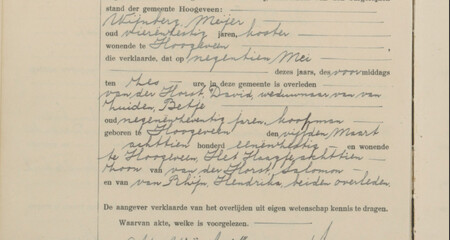 stand der gemeente Hoogeveen:
Wijnberg, Meijer
oud vierenzestig jaren, koster
wonende te Hoogeveen
die verklaarde, dat op negentien Mei
dezes jaars, des voormiddags
ten ure, in deze gemeente is overleden
van der Horst, David, weduwnaar van van
Zuiden, Betje
oud jaren, koopman
geboren te Hoogeveen den vijfden Maart
achttien honderd eenenzestig en wonende
te Hoogeveen, Het Haagje achttien
zoon van van der Horst, Salomon
en van van Rhijn, Hendrika, beiden overleden.
De aangever verklaarde van het overlijden uit eigen wetenschap kennis te dragen.
Waarvan akte, welke is voorgelezen.